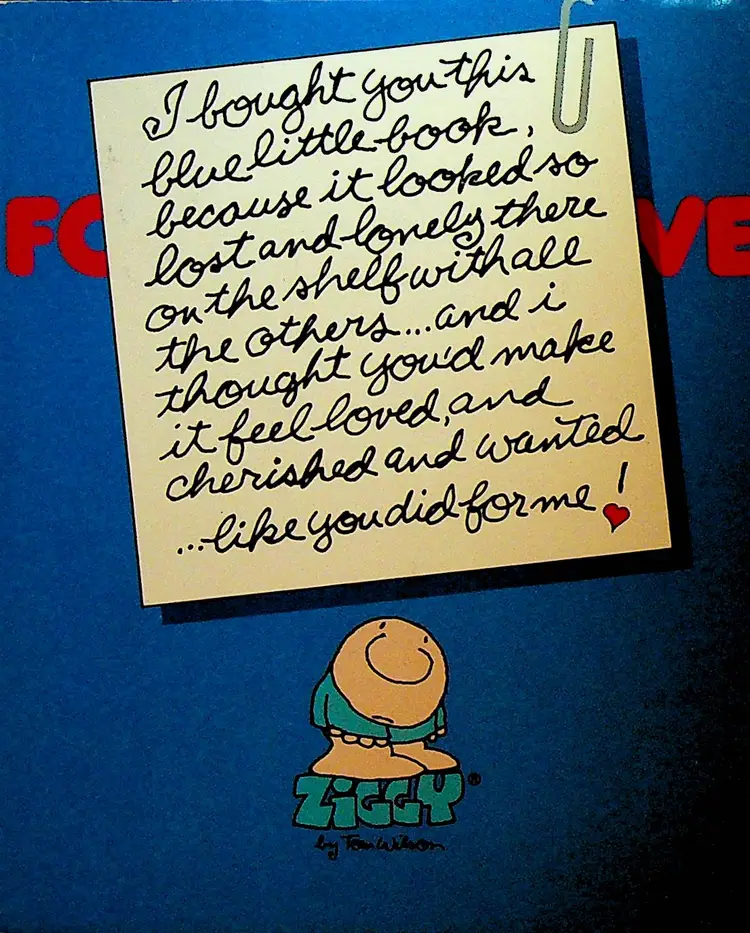 I bought you this
blue little book,
because it looked so
lost and lonely there
on the shelf with all
the others...and i
thought you'd make
it feel loved, and
cherished and wanted
...like you did for me!
FO VE
ZiGGY®
by Tom Wilson